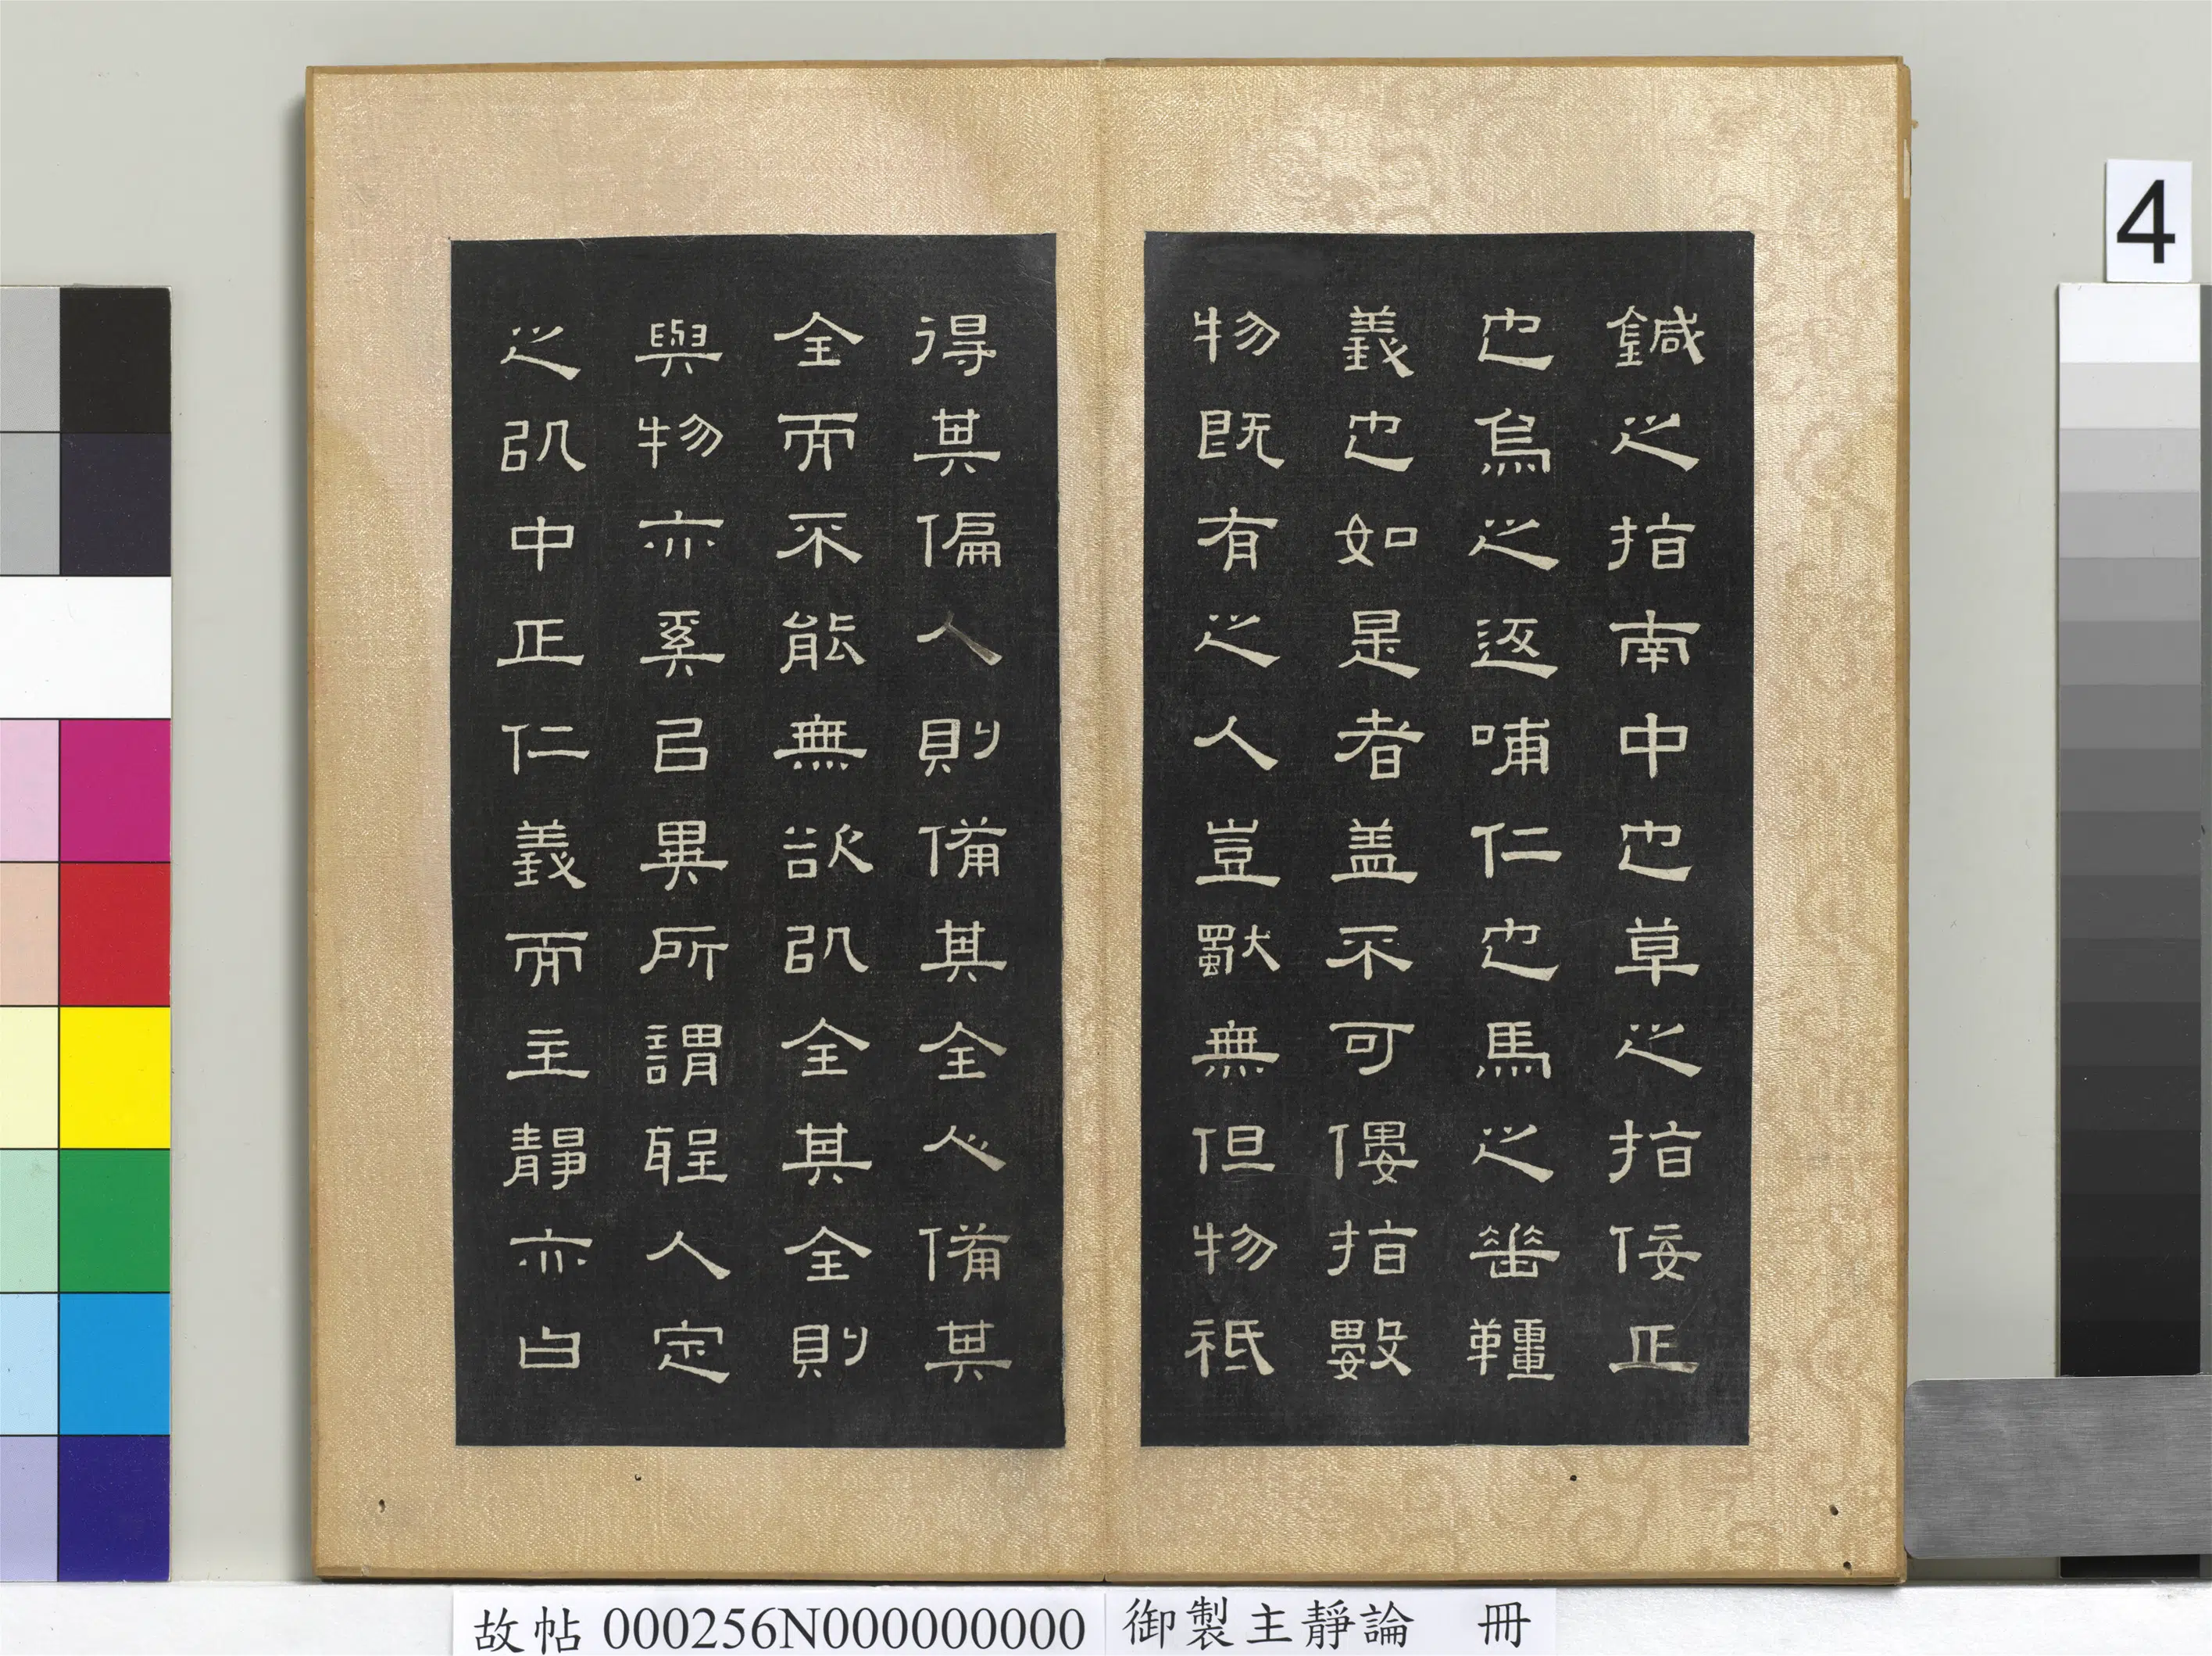 鍼之指南中也草之指佞正
也烏之返哺仁也馬之垂韁
義也如是者盖不可僂指數
物既有之人豈獨無但物祗
得其偏人則備其全心備其
全而不能無欲以全其全則
與物亦奚以異所謂聖人定
之以中正仁義而主靜亦白
4
故帖 000256N000000000 御製主靜論 冊